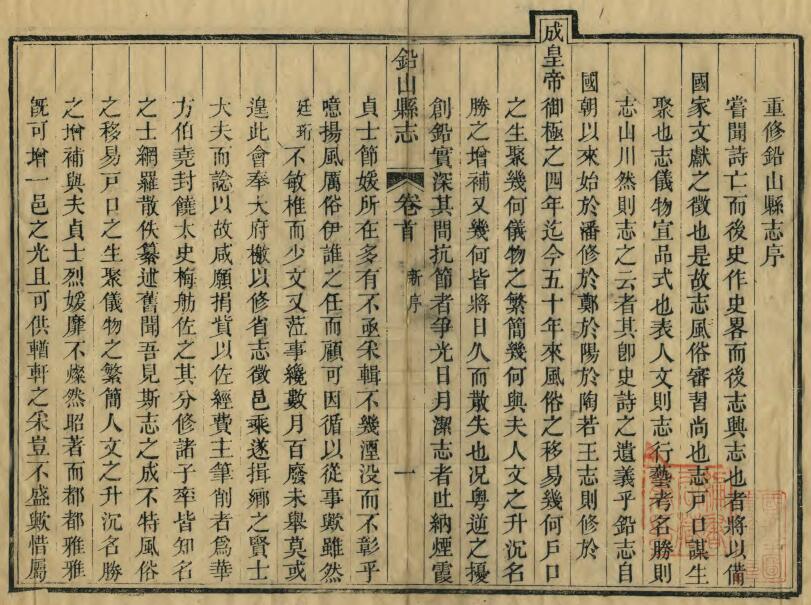 重修鉛山縣志序
嘗聞詩亡而後史作史畧而後志興志也者將以備
國家文獻之徵也是故志風俗審習尚也志戸口謀生
聚也志儀物宣品式也表人文則志行藝考名勝則
志山川然則志之云者其卽史詩之遺義乎鉛志自
國朝以來始於潘修於鄭於陽於陶若王志則修於
成皇帝御極之四年迄今五十年來風俗之移易幾何戸口
之生聚幾何儀物之繁簡幾何與夫人文之升沉名
勝之增補又幾何皆將日久而散失也況粵逆之擾
創鉛實深其間抗節者爭光日月潔志者吐納煙霞
鉛山縣志
卷首
新序
一
貞士節媛所在多有不亟采輯不幾湮没而不彰乎
噫揚風厲俗伊誰之任而顧可因循以從事歟雖然
廷珩不敏椎而少文又蒞事纔數月百廢未舉莫或
遑此會奉大府檄以修省志徵邑乘遂揖鄉之賢士
大夫而諗以故咸願捐貲以佐經費主筆削者為華
方伯堯封饒太史梅舫佐之其分修諸子率皆知名
之士網羅散佚纂述舊聞吾見斯志之成不特風俗
之移易戸口之生聚儀物之繁簡人文之升沉名勝
之增補與夫貞士烈媛靡不燦然昭著而都都雅雅
旣可增一邑之光且可供輶軒之采豈不盛歟惜屬